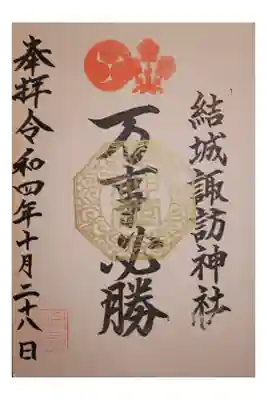 結城諏訪神社
万事必勝
奉拝令和四年十月二十八日